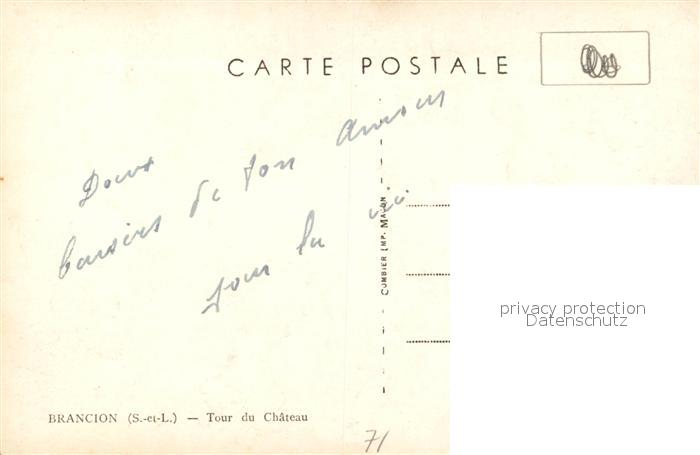 CARTE POSTALE
Doux
baisers de ton amour
pour la vie
COMBIER IMP. MACON
privacy protection
Datenschutz
BRANCION (S.-et-L.) — Tour du Château
71